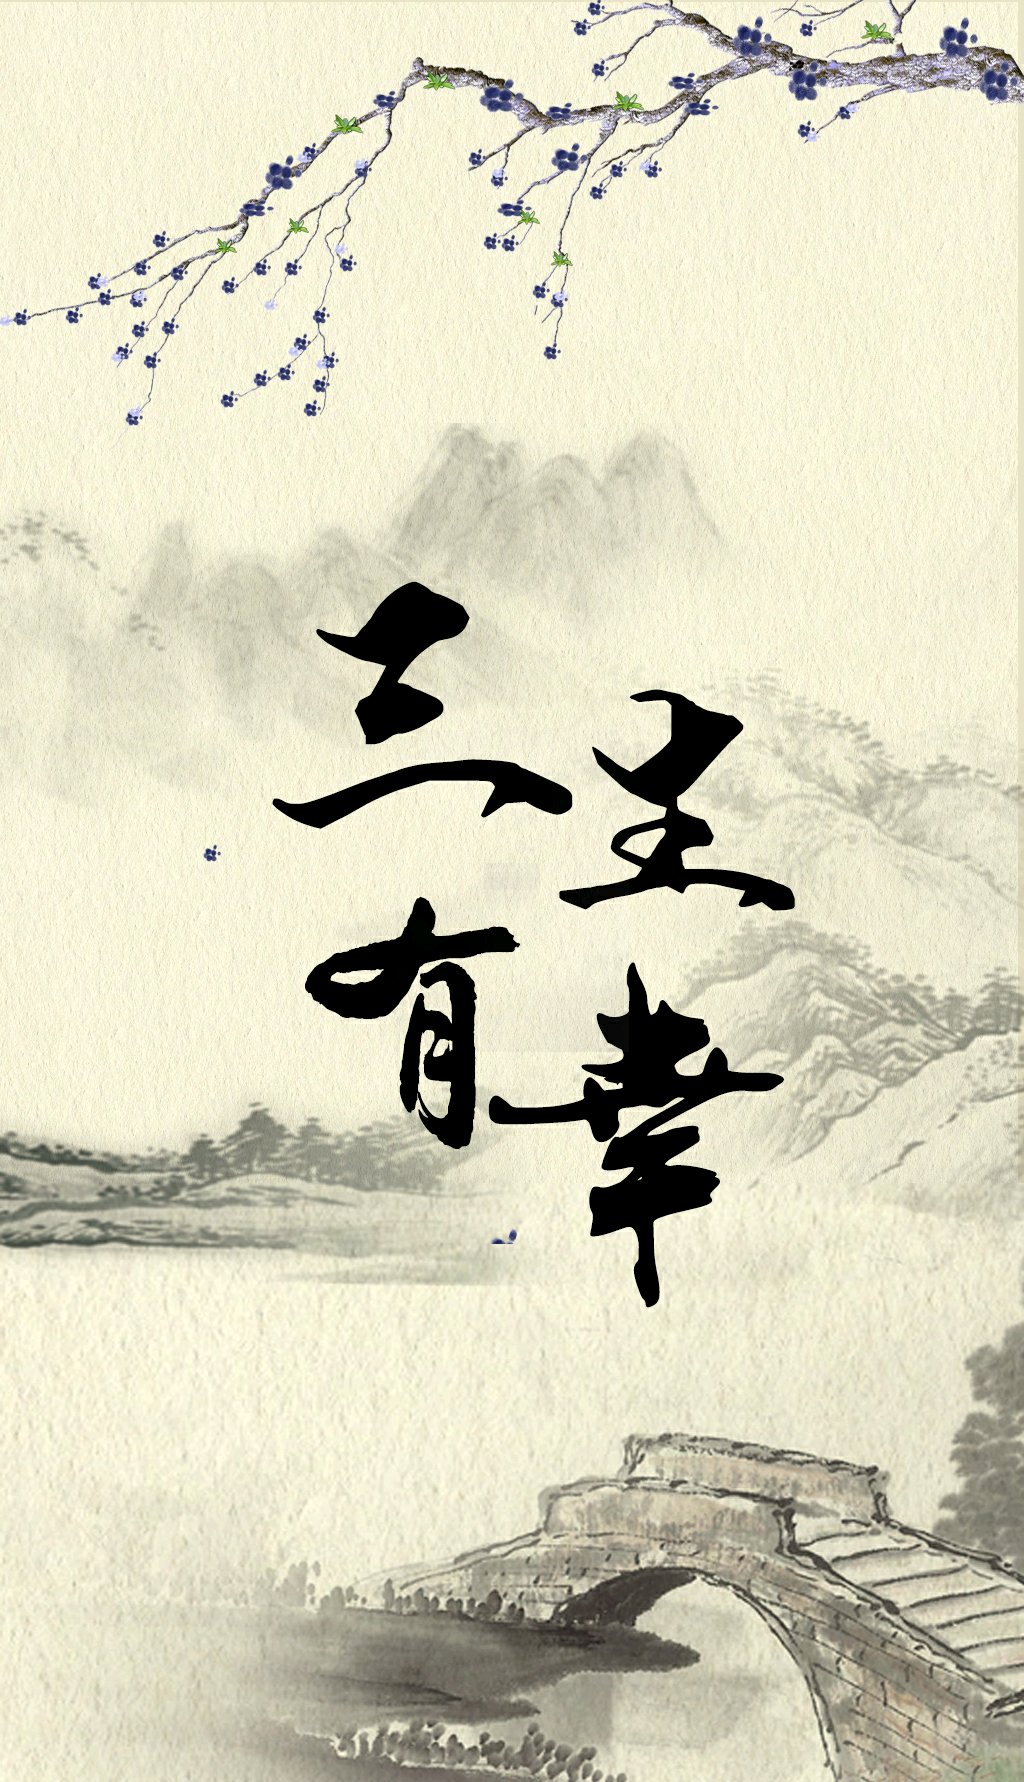 三生
有幸